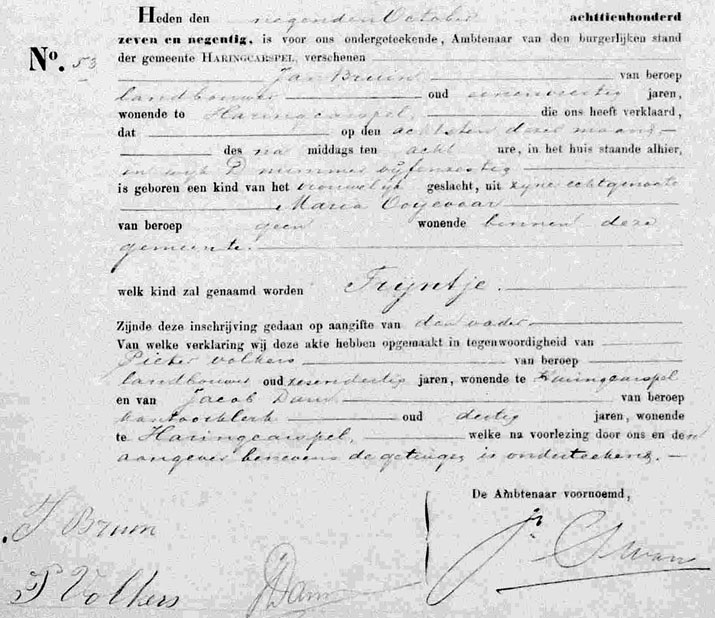 Heden den negenden October achttienhonderd
No. 53 zeven en negentig, is voor ons ondergeteekende, Ambtenaar van den burgerlijken stand
der gemeente HARINGCARSPEL verschenen
Jan Bruin van beroep
landbouwer oud eenenveertig jaren,
wonende te Haringcarspel, die ons heeft verklaard,
dat op den achtsten dezer maand
des na middags ten acht ure, in het huis staande alhier,
in wijk D nummer vijfenzestig
is geboren een kind van het vrouwelijk geslacht, uit zijne echtgenoote
Maria Ooyevaar
van beroep geen wonende binnen deze
gemeente.
welk kind zal genaamd worden Trijntje.
Zijnde deze inschrijving gedaan op aangifte van den vader
Van welke verklaring wij deze akte hebben opgemaakt in tegenwoordigheid van
Pieter Volkers van beroep
landbouwer oud zesendertig jaren, wonende te Haringcarspel
en van Jacob Dam van beroep
kantoorklerk oud dertig jaren, wonende
te Haringcarspel, welke na voorlezing door ons en den
aangever benevens de getuigen is onderteekend.
De Ambtenaar voornoemd,
J Bruin
P Volkers
J Dam
Swan